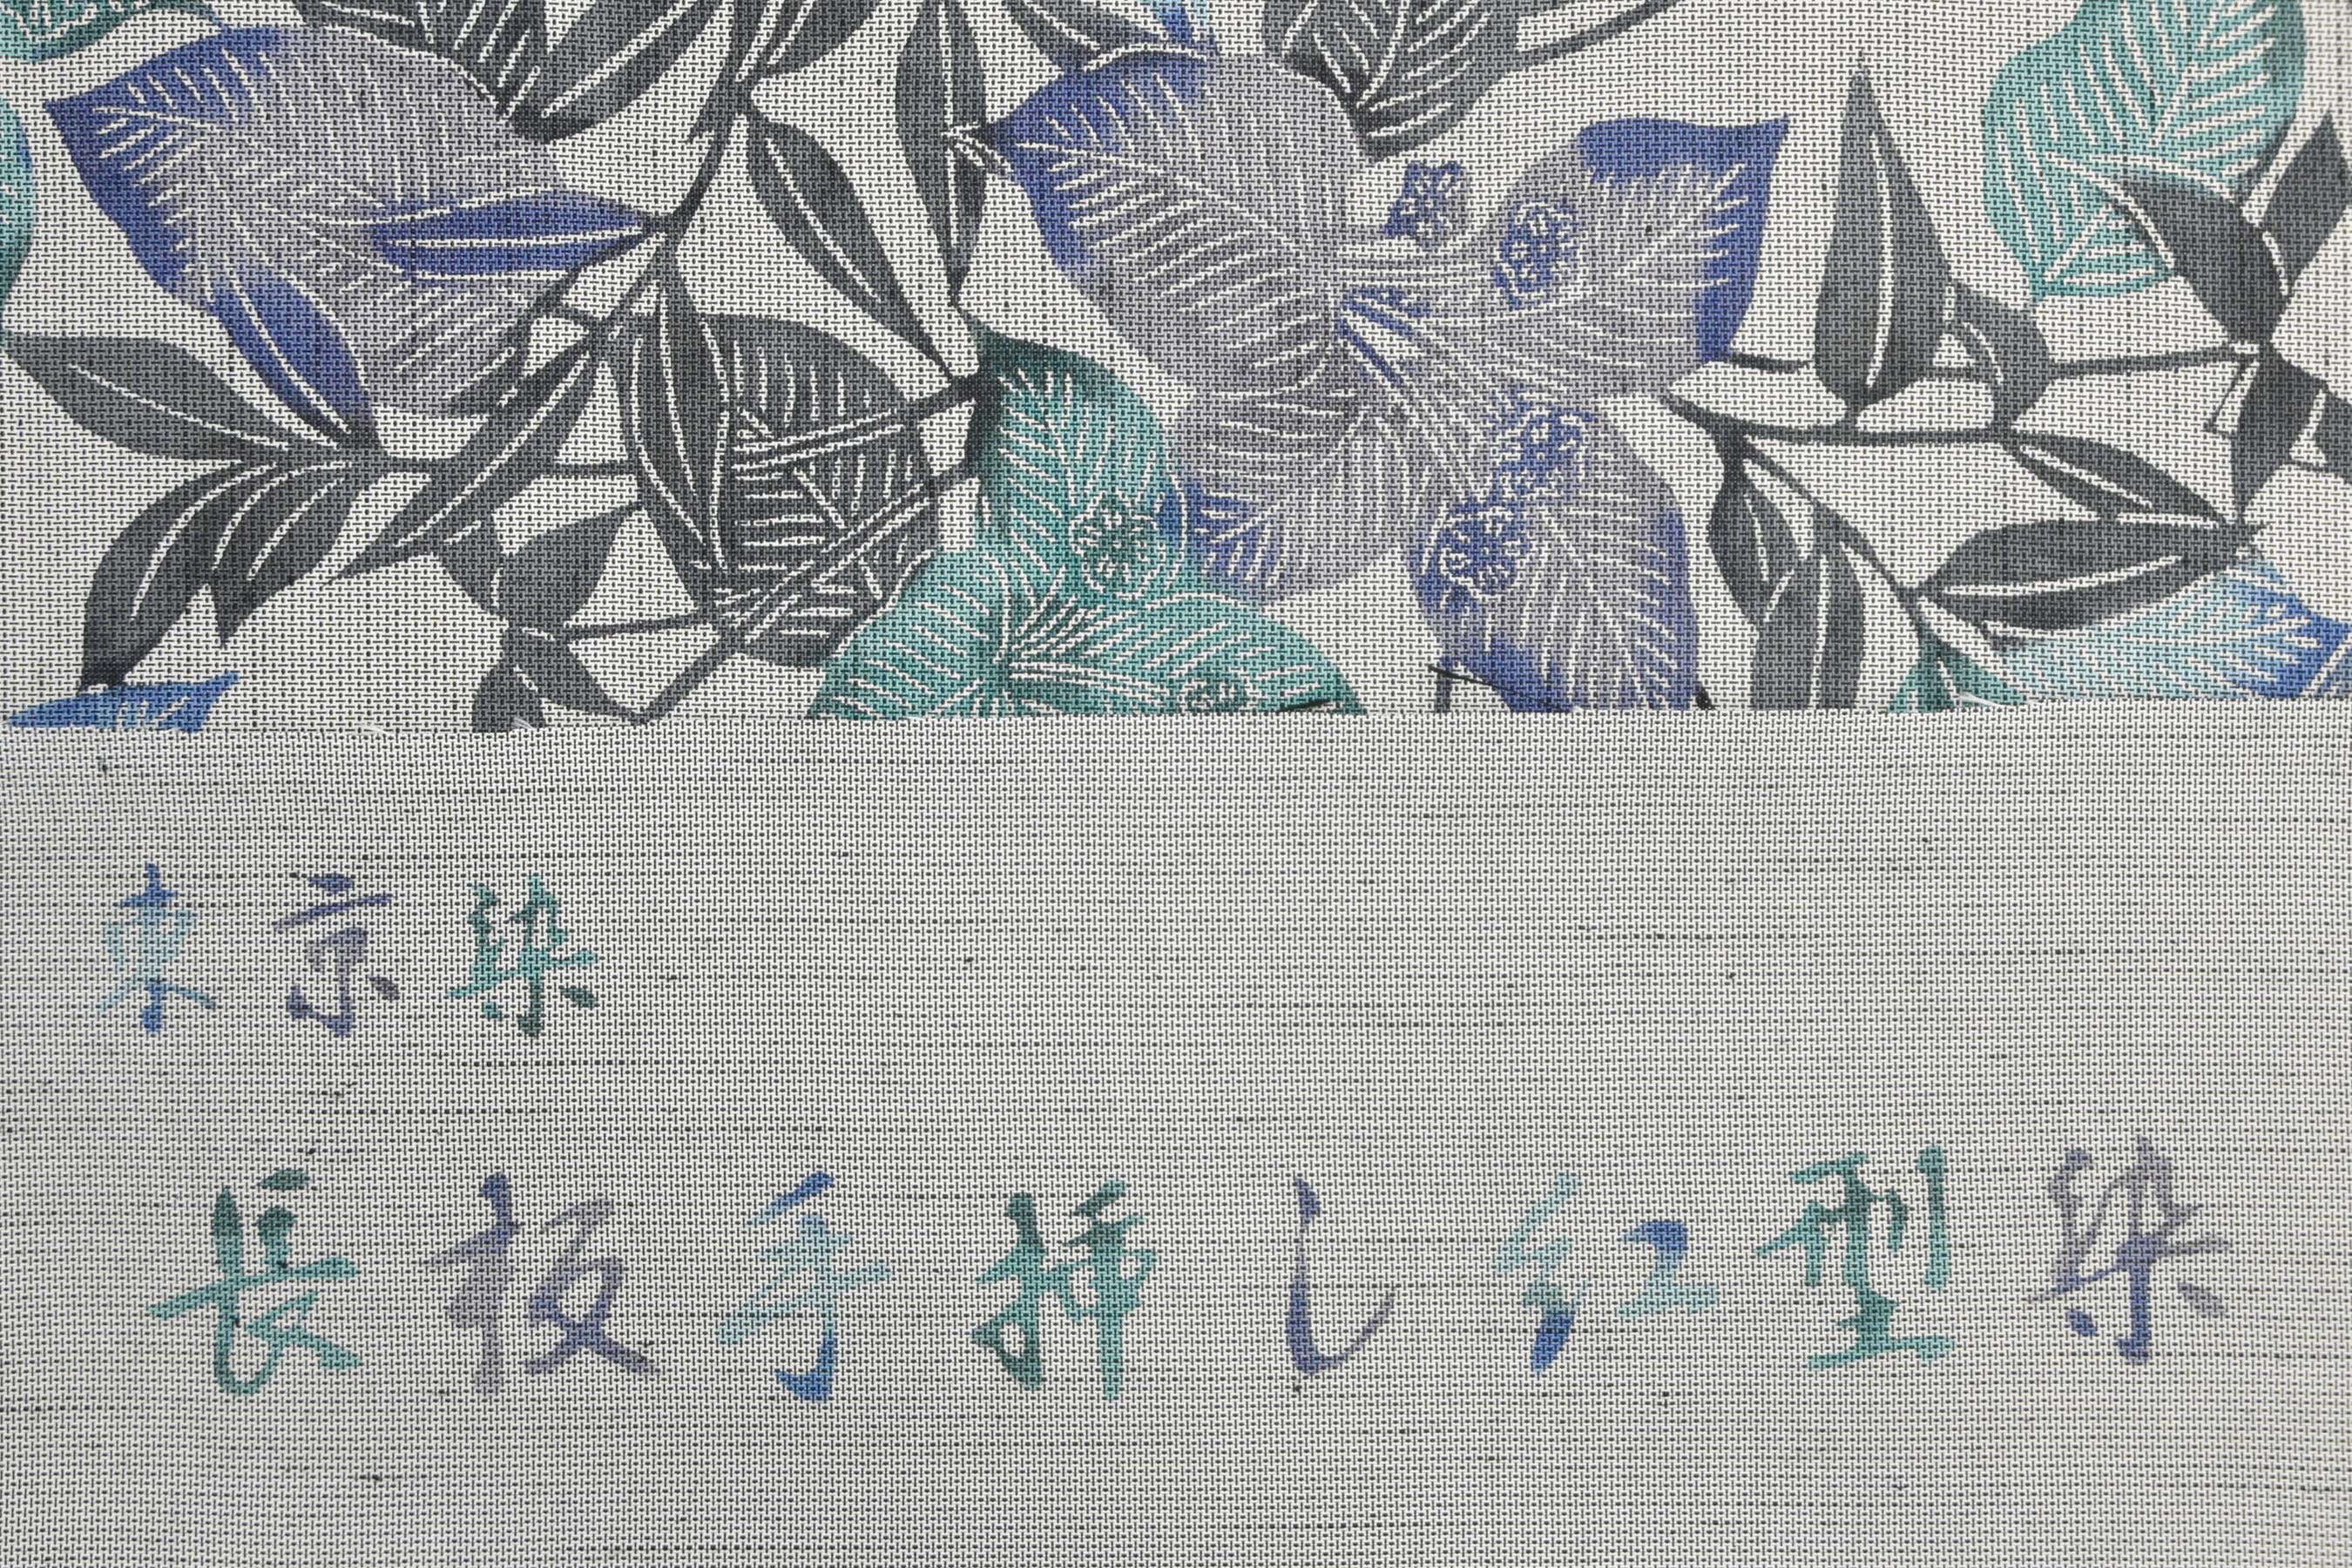 東京染
長板手挿し紅型染